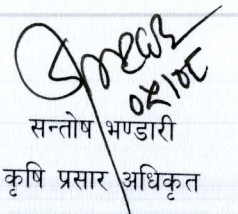 ०५।०८
सन्तोष भण्डारी
कृषि प्रसार अधिकृत